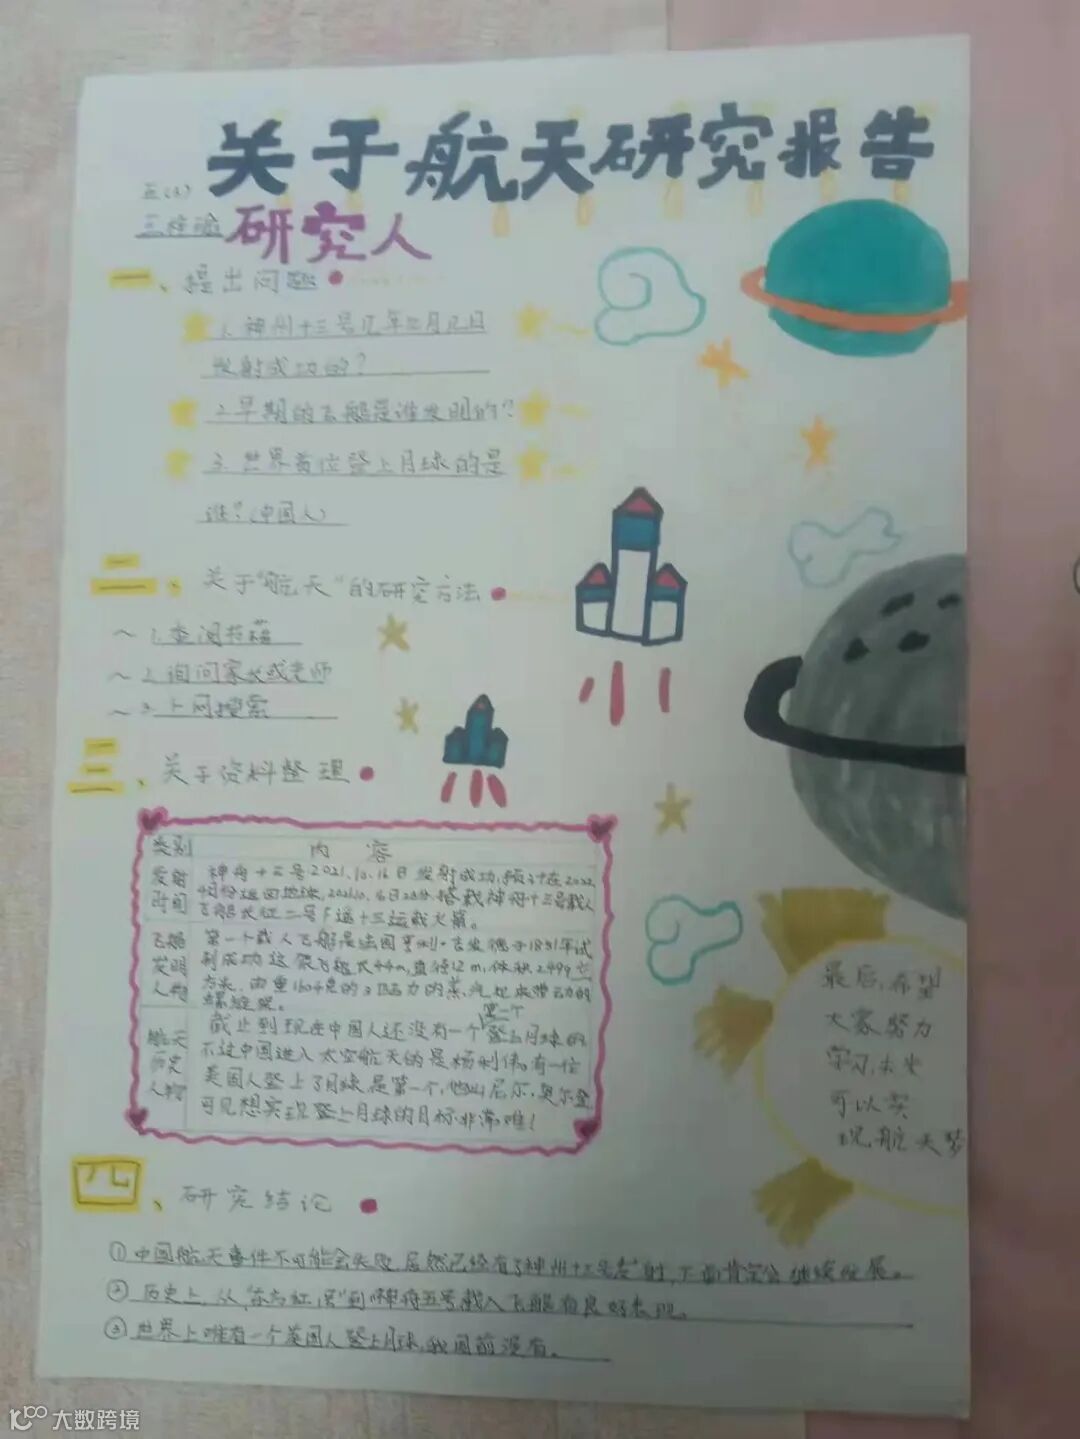 关于航天研究报告
研究人
一、提出问题
1.神州十三号几年几月几日
发射成功的?
2.早期的飞船是谁发明的?
3.世界首位登上月球的是
谁?(中国人)
二、关于"航天"的研究方法
~1.查阅书籍
~2.询问家长或老师
~3.上网搜索
三、关于资料整理
类别 内容
发射时间 神舟十三号2021.10.16日发射成功,预计在2022
4月份返回地球,2021.10.16日 搭载神舟十三号载人
飞船长征二号F遥十三运载火箭。
飞船发明人物 第一个载人飞船是法国亨利·吉发德于1851年试
制成功这艘飞艇长44m,直径12m,体积2499
方米,由重160千克的3马力的蒸汽机来带动的
螺旋桨。
航天历史人物 截止到现在中国人还没有一个登上月球的
第一个
不过中国进入太空航天的是杨利伟,有一位
美国人登上了月球是第一个,他叫尼尔,奥尔登
可见想实现登上月球的目标非常难!
最后,希望
大家努力
学习,未来
可以实
现航天梦
四、研究结论
①中国航天事件不可能会失败,居然已经有了神州十三号 射,下面肯定会继续发展。
②历史上,从"东方红 "到神舟五号载人飞船有良好表现。
③世界上唯有一个美国人登上月球,我国前没有。
大数跨境